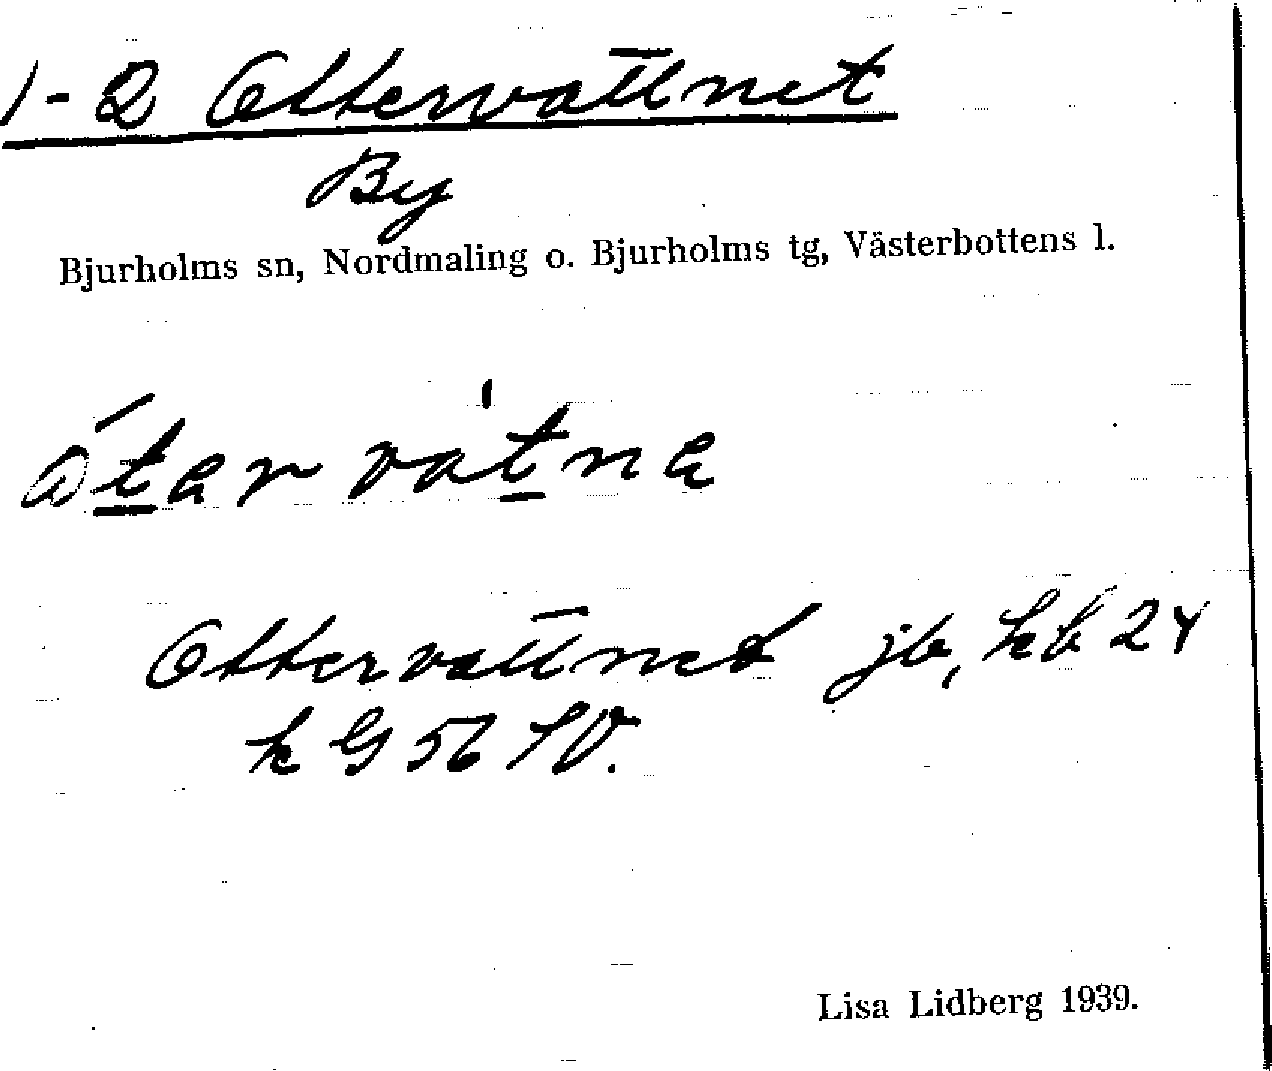 1-2 Ottervattnet
By
Bjurholms sn, Nordmaling o. Bjurholms tg, Västerbottens l.
Ottervattnet jb, kb 24
k G 56 SV.
Lisa Lidberg 1939.